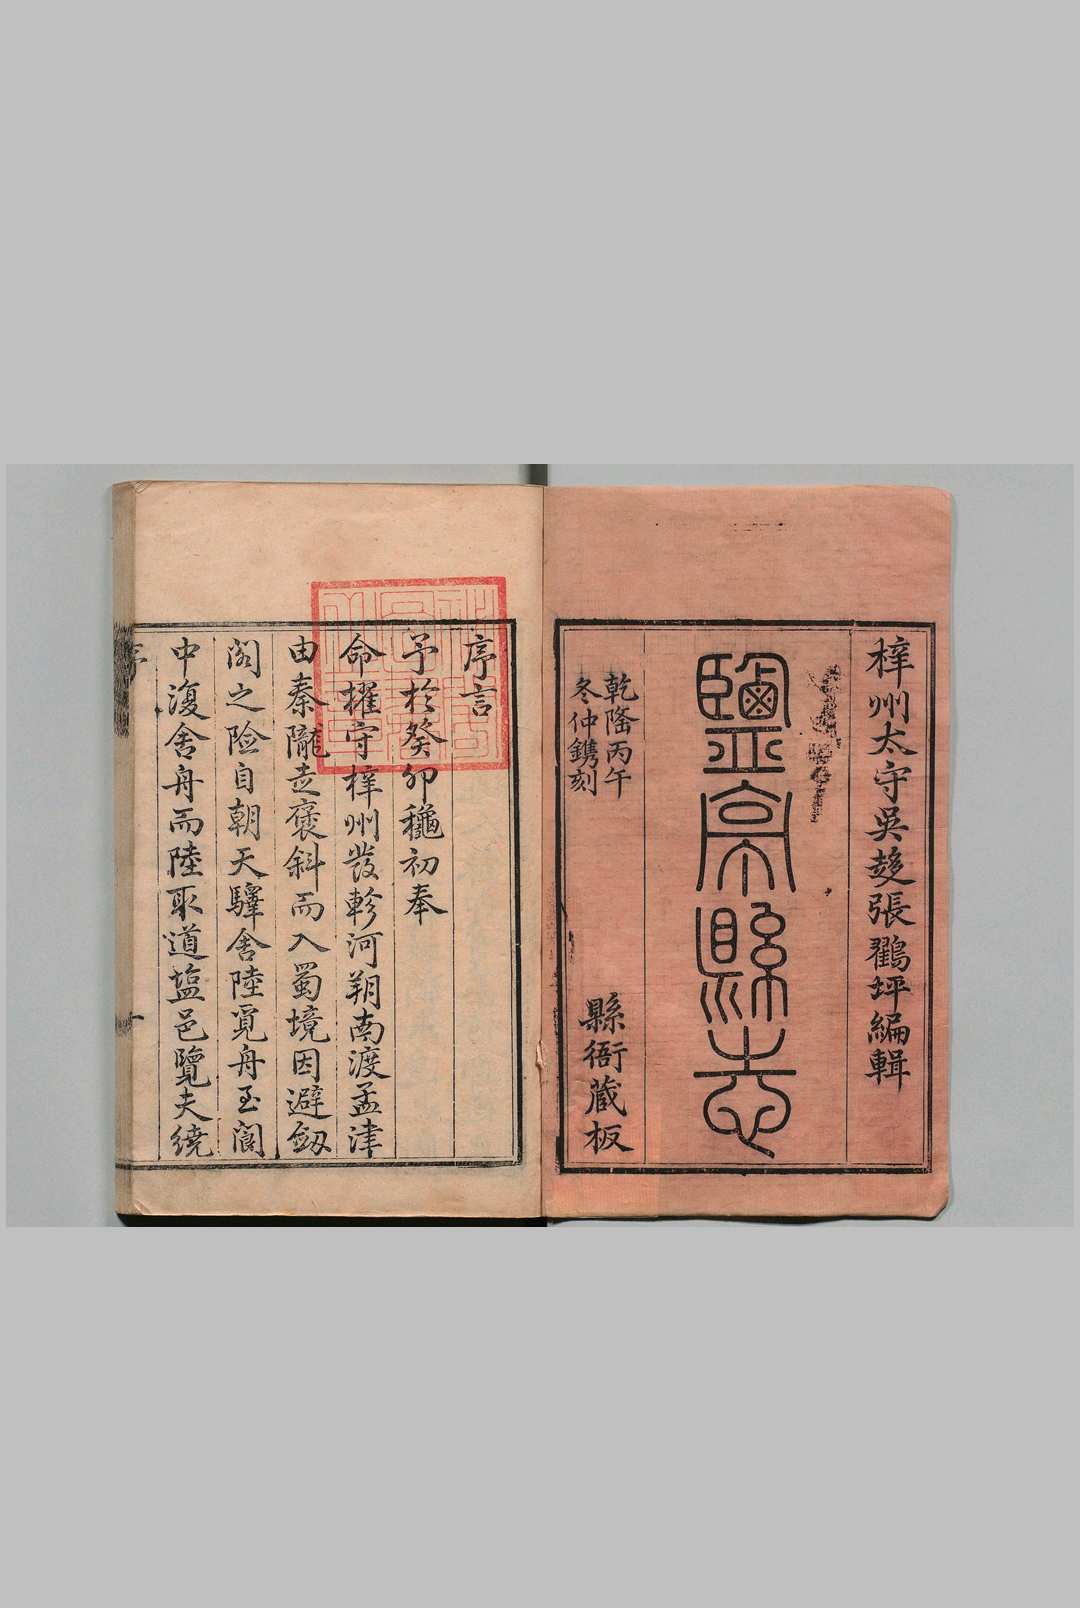 梓州太守吳趍張鸐坪編輯
鹽亭縣志
乾隆丙午
冬仲鐫刻
縣衙藏板
序言
予於癸卯龝初奉
命擢守梓州發軫河朔南渡孟津
由秦隴走襃斜而入蜀境因避劔
閣之險自朝天驛舍陸覓舟至閬
中復舍舟而陸取道塩邑覽夫繞